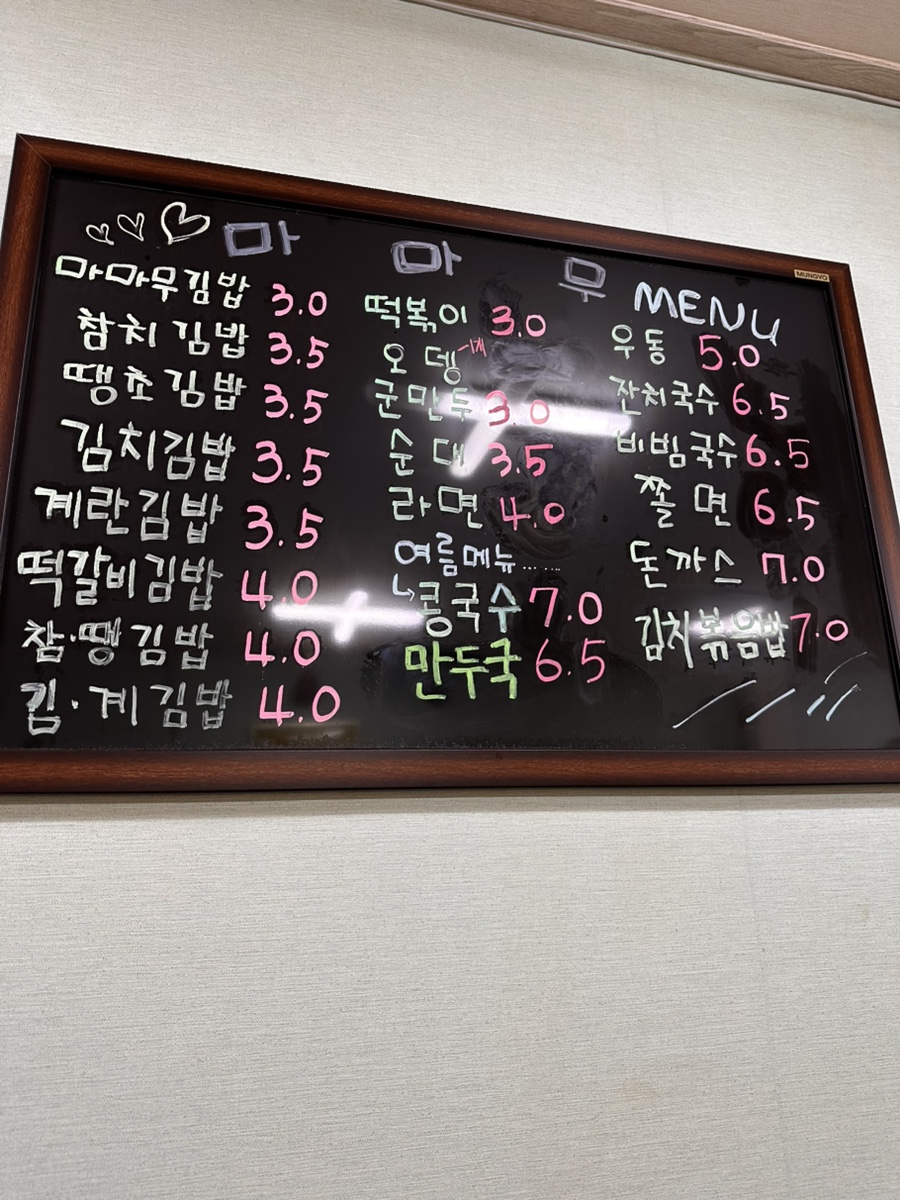 마 마 무 MENU
MUNGYO
마마무김밥 3.0
참치김밥 3.5
땡초김밥 3.5
김치김밥 3.5
계란김밥 3.5
떡갈비김밥 4.0
참·땡김밥 4.0
김·계김밥 4.0
떡볶이 3.0
오뎅
군만두 3.0
순대 3.5
라면 4.0
여름메뉴......
↳콩국수 7.0
만두국 6.5
우동 5.0
잔치국수 6.5
비빔국수 6.5
쫄면 6.5
돈까스 7.0
김치볶음밥 7.0